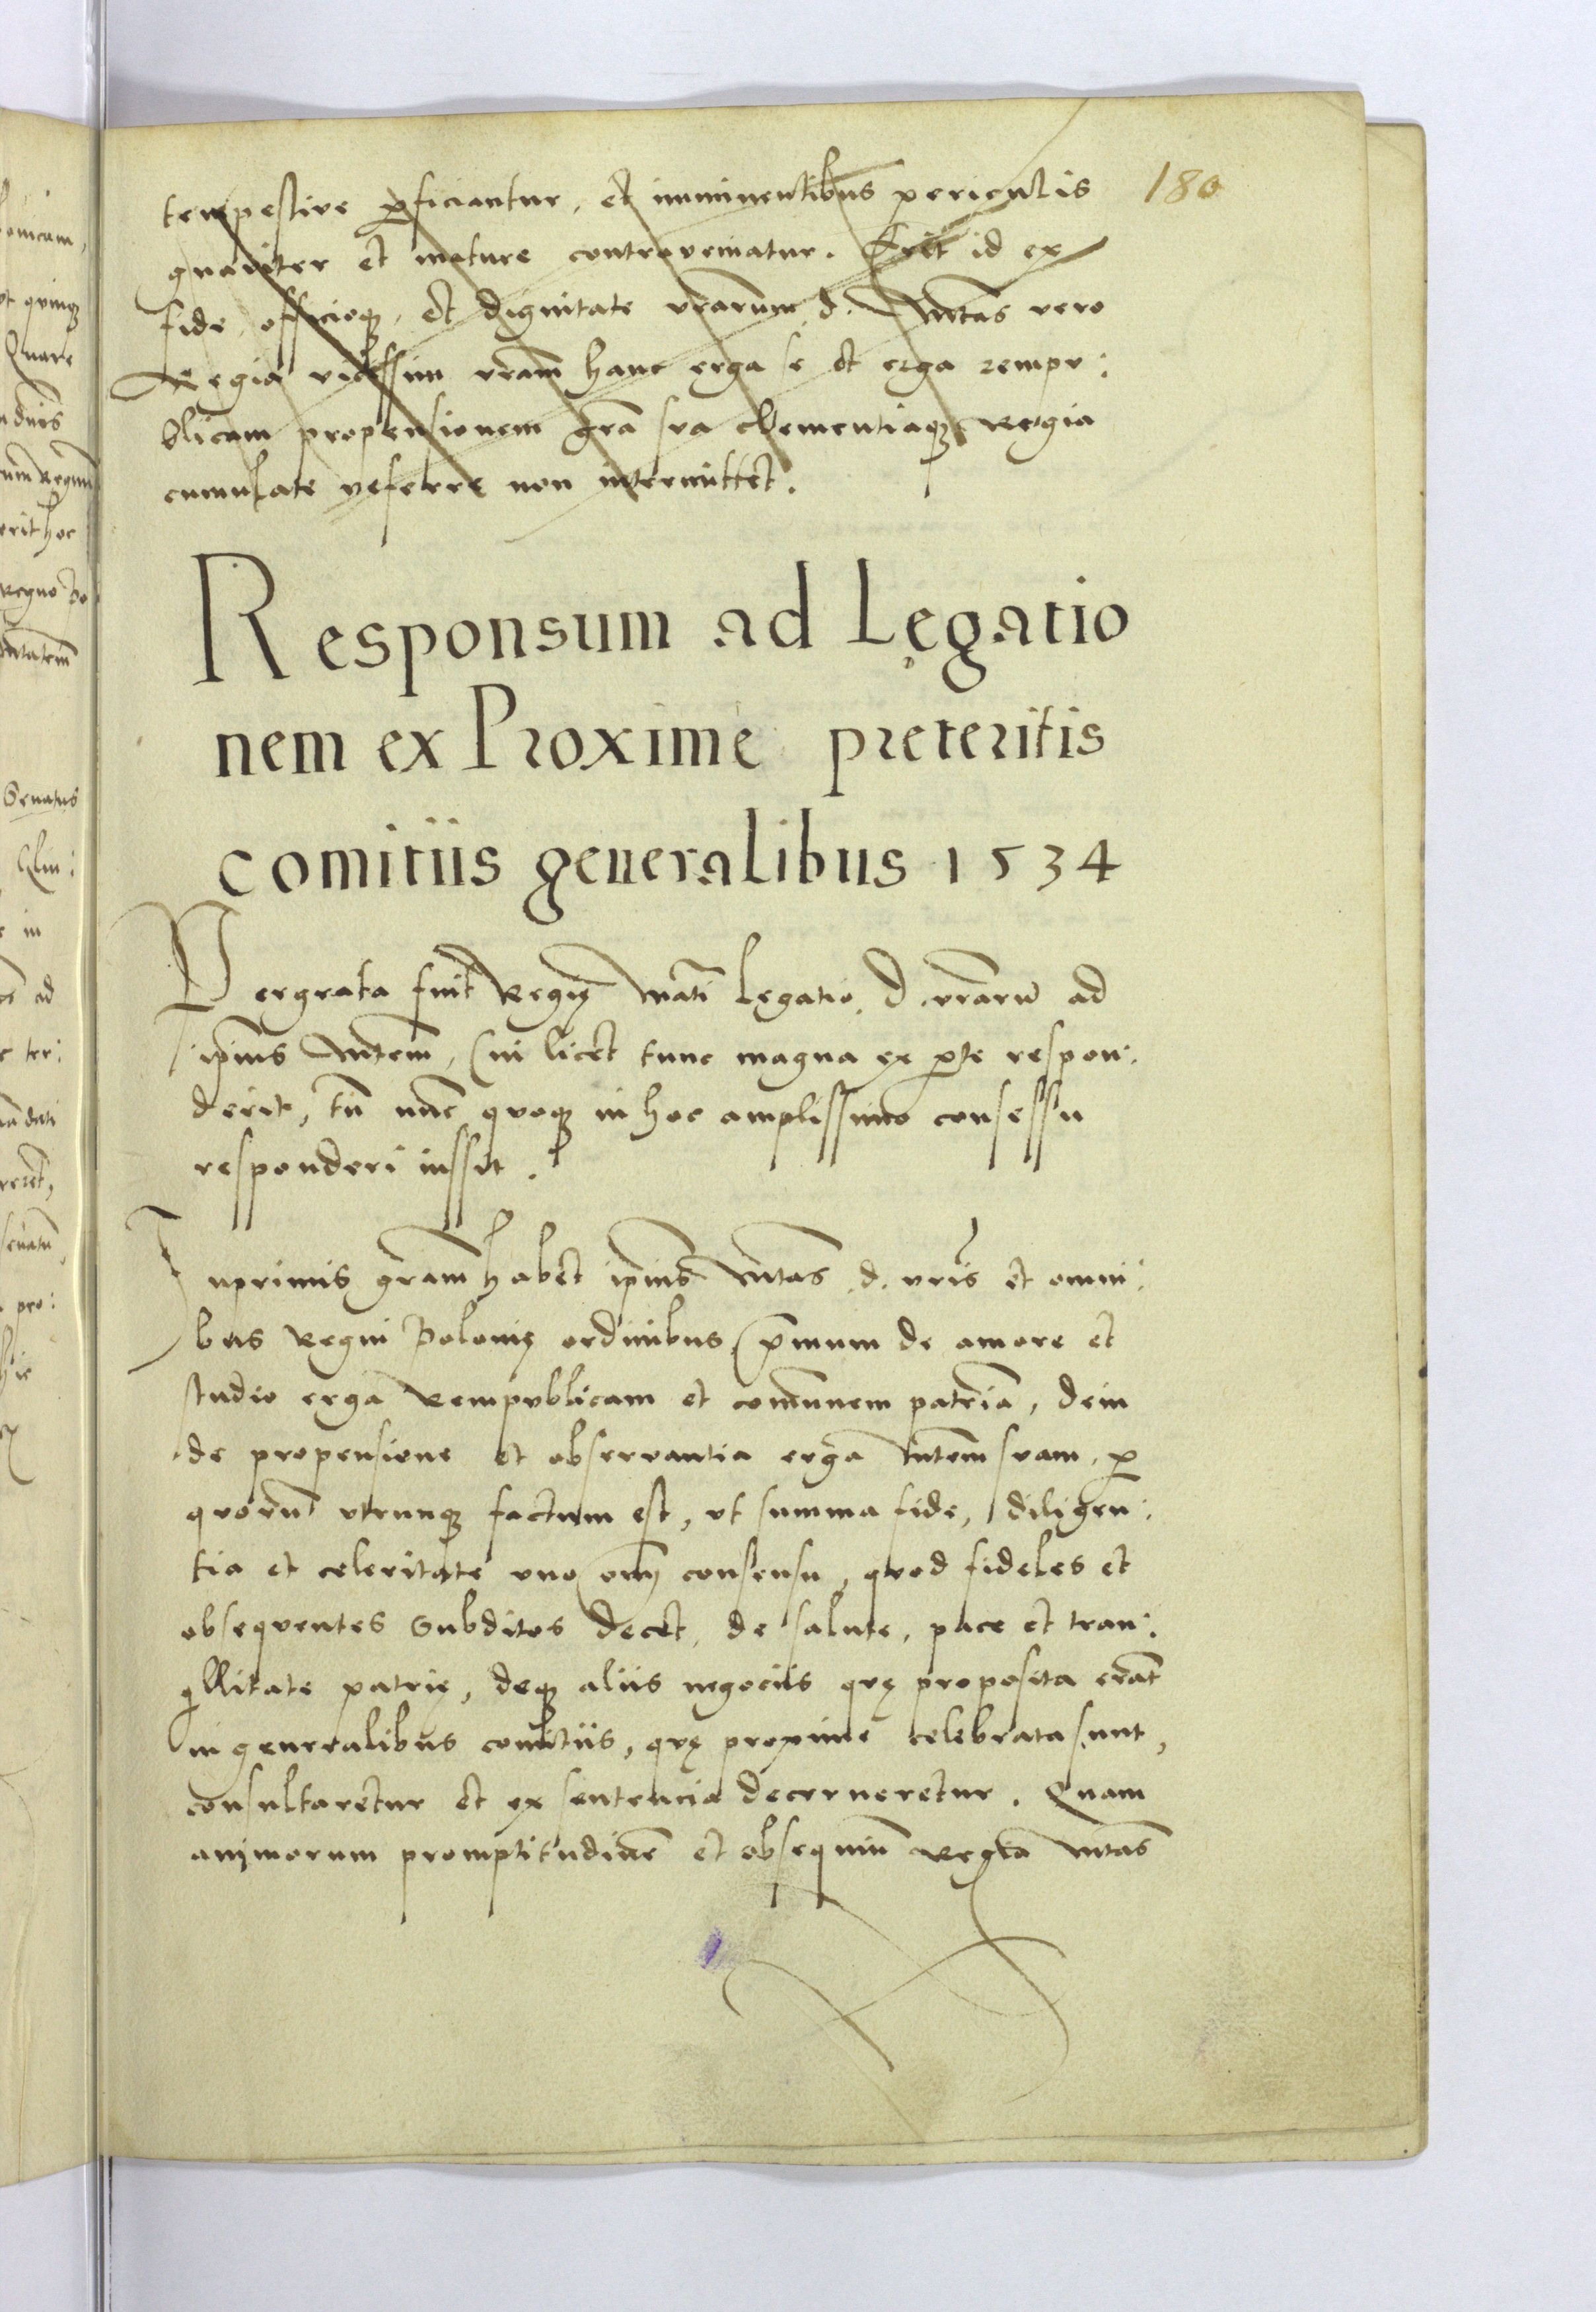 180
tempestive p̱ficiantur, et imminentibus periculis
gnaviter et mature contraveniatur. Erit id ex
fide officioq̨ et dignitate vrarum d. Mtas vero
Regia vicissim vram hanc erga se et erga rempu:
blicam propensionem gra sua clementiaq̨ Regia
cumulate referre non intermittet.
Responsum ad Lęgatio
nem ex Proxime preteritis
comitiis generalibus 1534
Pergrata fuit Regię Mati Lęgatio d. vrarū ad
ipsius Mtem, Cui licet tunc magna ex p̱te respon:
derit, tn̄ nūc quoq̨ in hoc amplissimo consessu
responderi iussit.
Inprimis gram habet ipsius Mtas d. vris et omni:
bus Regni Polonię ordinibus, Pmum de amore et
studio erga Rempublicam et comunem patriā, dein
de propensione et observantia erga Mtem suam, p̱
quorū utrunq̨ factum est, ut summa fide, diligen:
tia et celeritate uno om̄ consensu, quod fideles et
obsequentes Subditos decet, de salute, pace et tran:
qllitate patrię, deq̨ aliis negociis quę proposita erāt
in generalibus comitiis, quę proxime celebrata sunt,
consultaretur et ex sentencia decerneretur. Quam
animorum promptitudinē et obsequiū Regia Mtas
onicam,
ut quinq̨
Quare
erit hoc
Senatus
in
ad
ter:
pro: